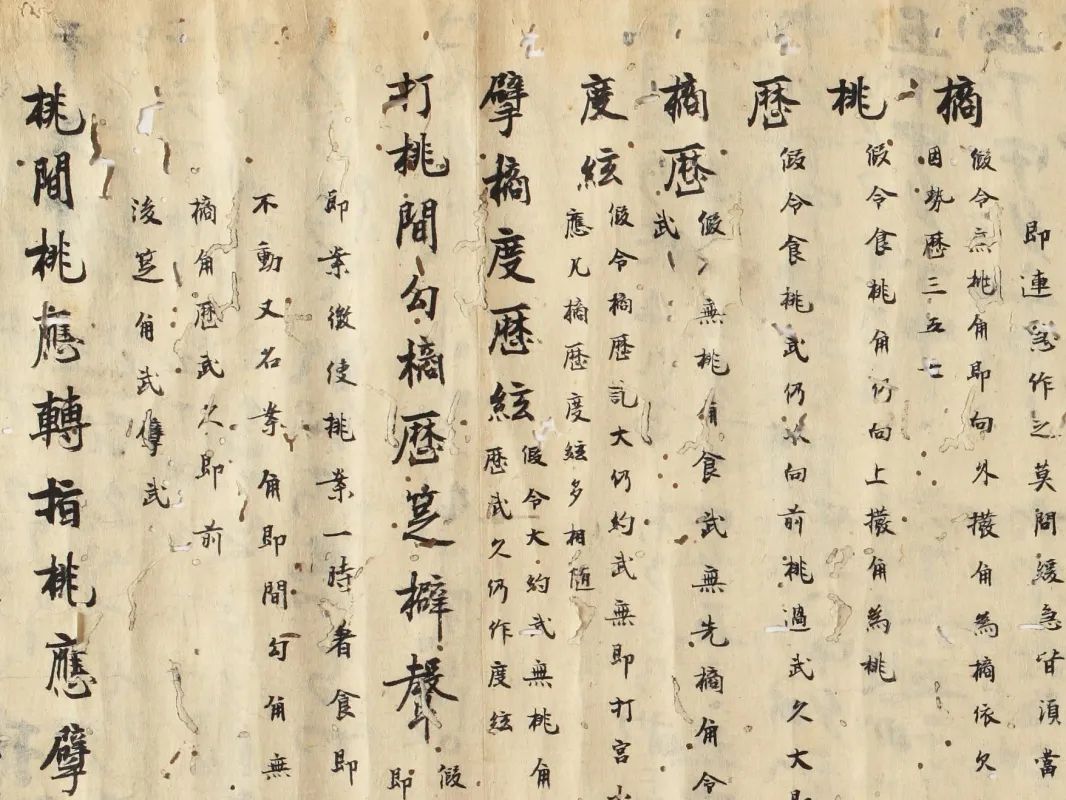 即連急作之莫問緩急皆須當
擿 假令無桃角即向外撥角為擿依欠
因勢歷三五七
桃 假令食桃角仍向上撥角為桃
歷 假令食桃武仍以向前桃過武久大即
擿歷 假令無桃角食武無先擿角令
武
度絃 假令擿歷訖大仍約武無即打宮
應凡擿歷度絃多相随
擘擿度歷絃 假令大約武無桃角
歷武久仍作度絃
打桃間勾擿歷 擗聲 假
即
即案徵使桃案一時者食即
不動又名案角即間勾角無
擿角歷武久即前
後 角武 武
桃間桃應轉指桃應擘